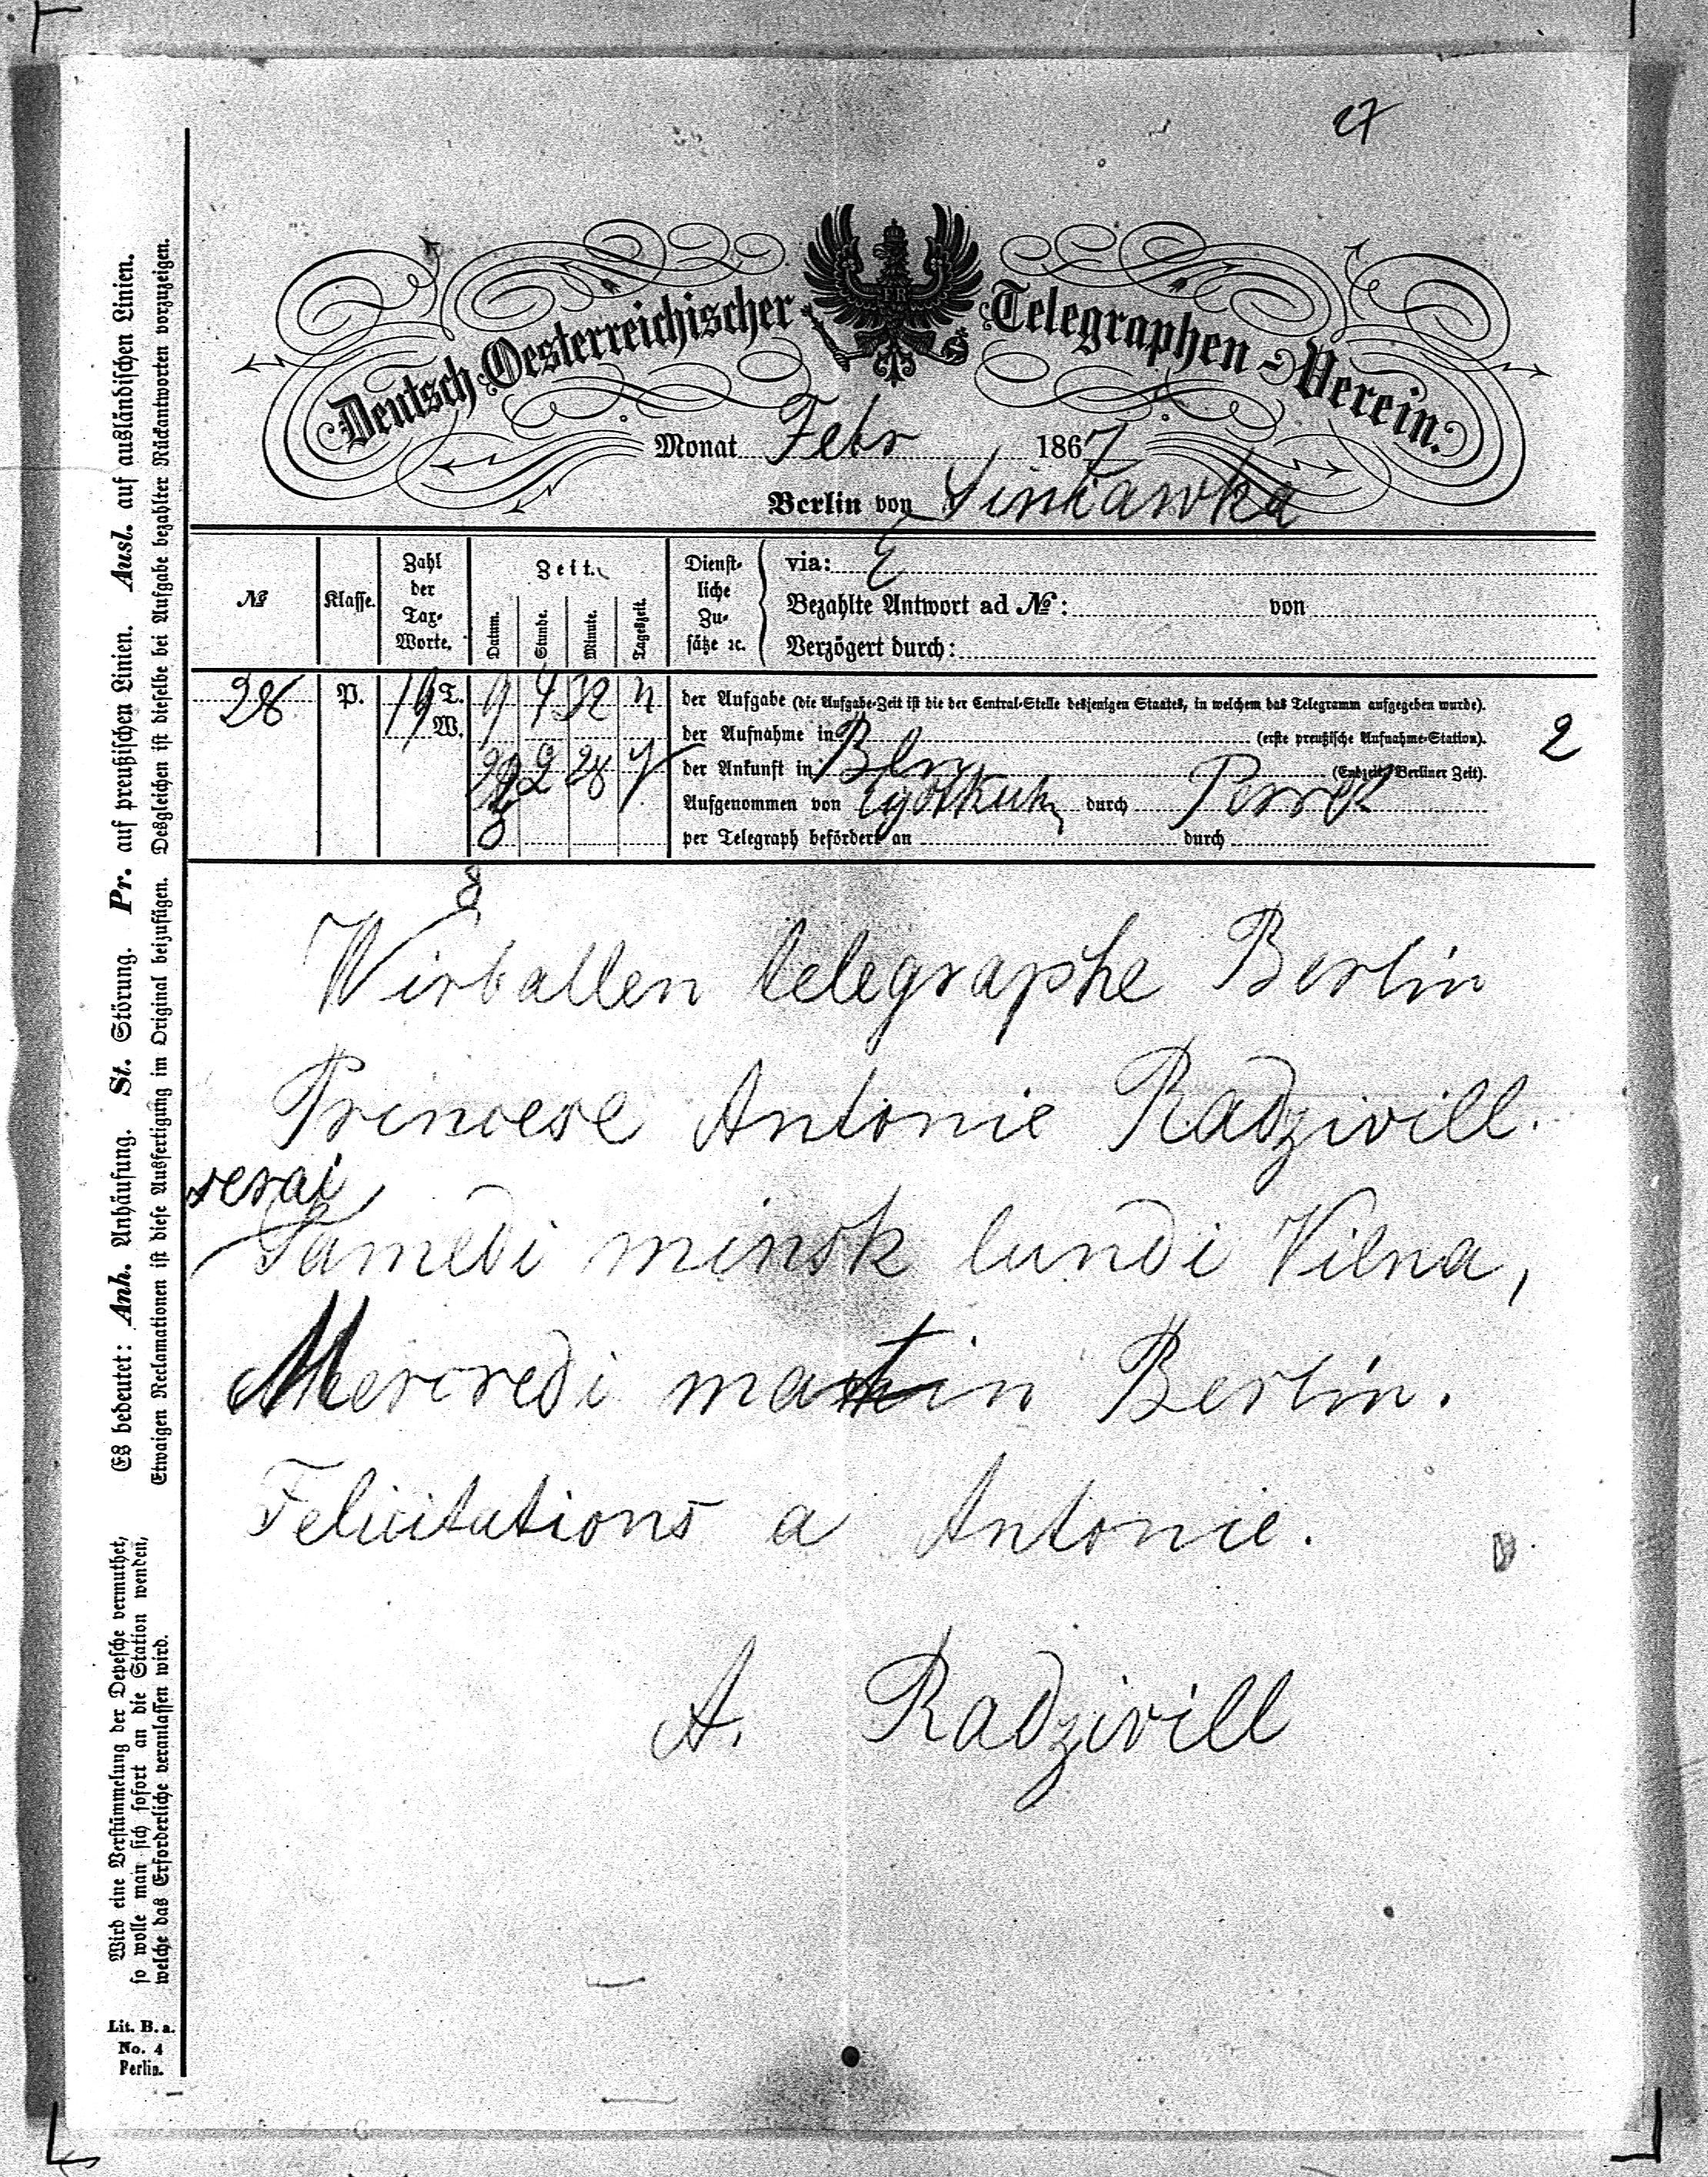 Deutsch-Oesterreichischer Telegraphen-Verein.
Monat Febr 1867
Berlin von Siniawka
№
Klasse.
Zahl der Tax-Worte.
Zeit.
Datum. Stunde. Minute. Tageszeit.
Dienstliche Zusätze ꝛc.
via:
Bezahlte Antwort ad №: von
Verzögert durch:
28 P. 19 T. W. 9 4 32 n
der Aufgabe (die Aufgabe-Zeit ist die der Central-Stelle desjenigen Staates, in welchem das Telegramm aufgegeben wurde).
der Aufnahme in (erste preußische Aufnahme-Station).
2 28
der Ankunft in Bln (Endzeit Berliner Zeit).
Aufgenommen von durch
per Telegraph befördert an durch
2
Wirballen telegraphe Berlin
Princese Antonie Radzivill.
serai
Samedi minsk lundi Vilna,
Mercredi matin Berlin.
Felicitations a Antonie.
A. Radzivill
Es bedeutet: Anh. Anhäufung. St. Störung. Pr. auf preußischen Linien. Ausl. auf ausländischen Linien.
Etwaigen Reclamationen ist diese Ausfertigung im Original beizufügen. Desgleichen ist dieselbe bei Aufgabe bezahlter Rückantworten vorzuzeigen.
Wird eine Verstümmelung der Depesche vermuthet,
so wolle man sich sofort an die Station wenden,
welche das Erforderliche veranlassen wird.
Lit. B. a.
No. 4
Berlin.